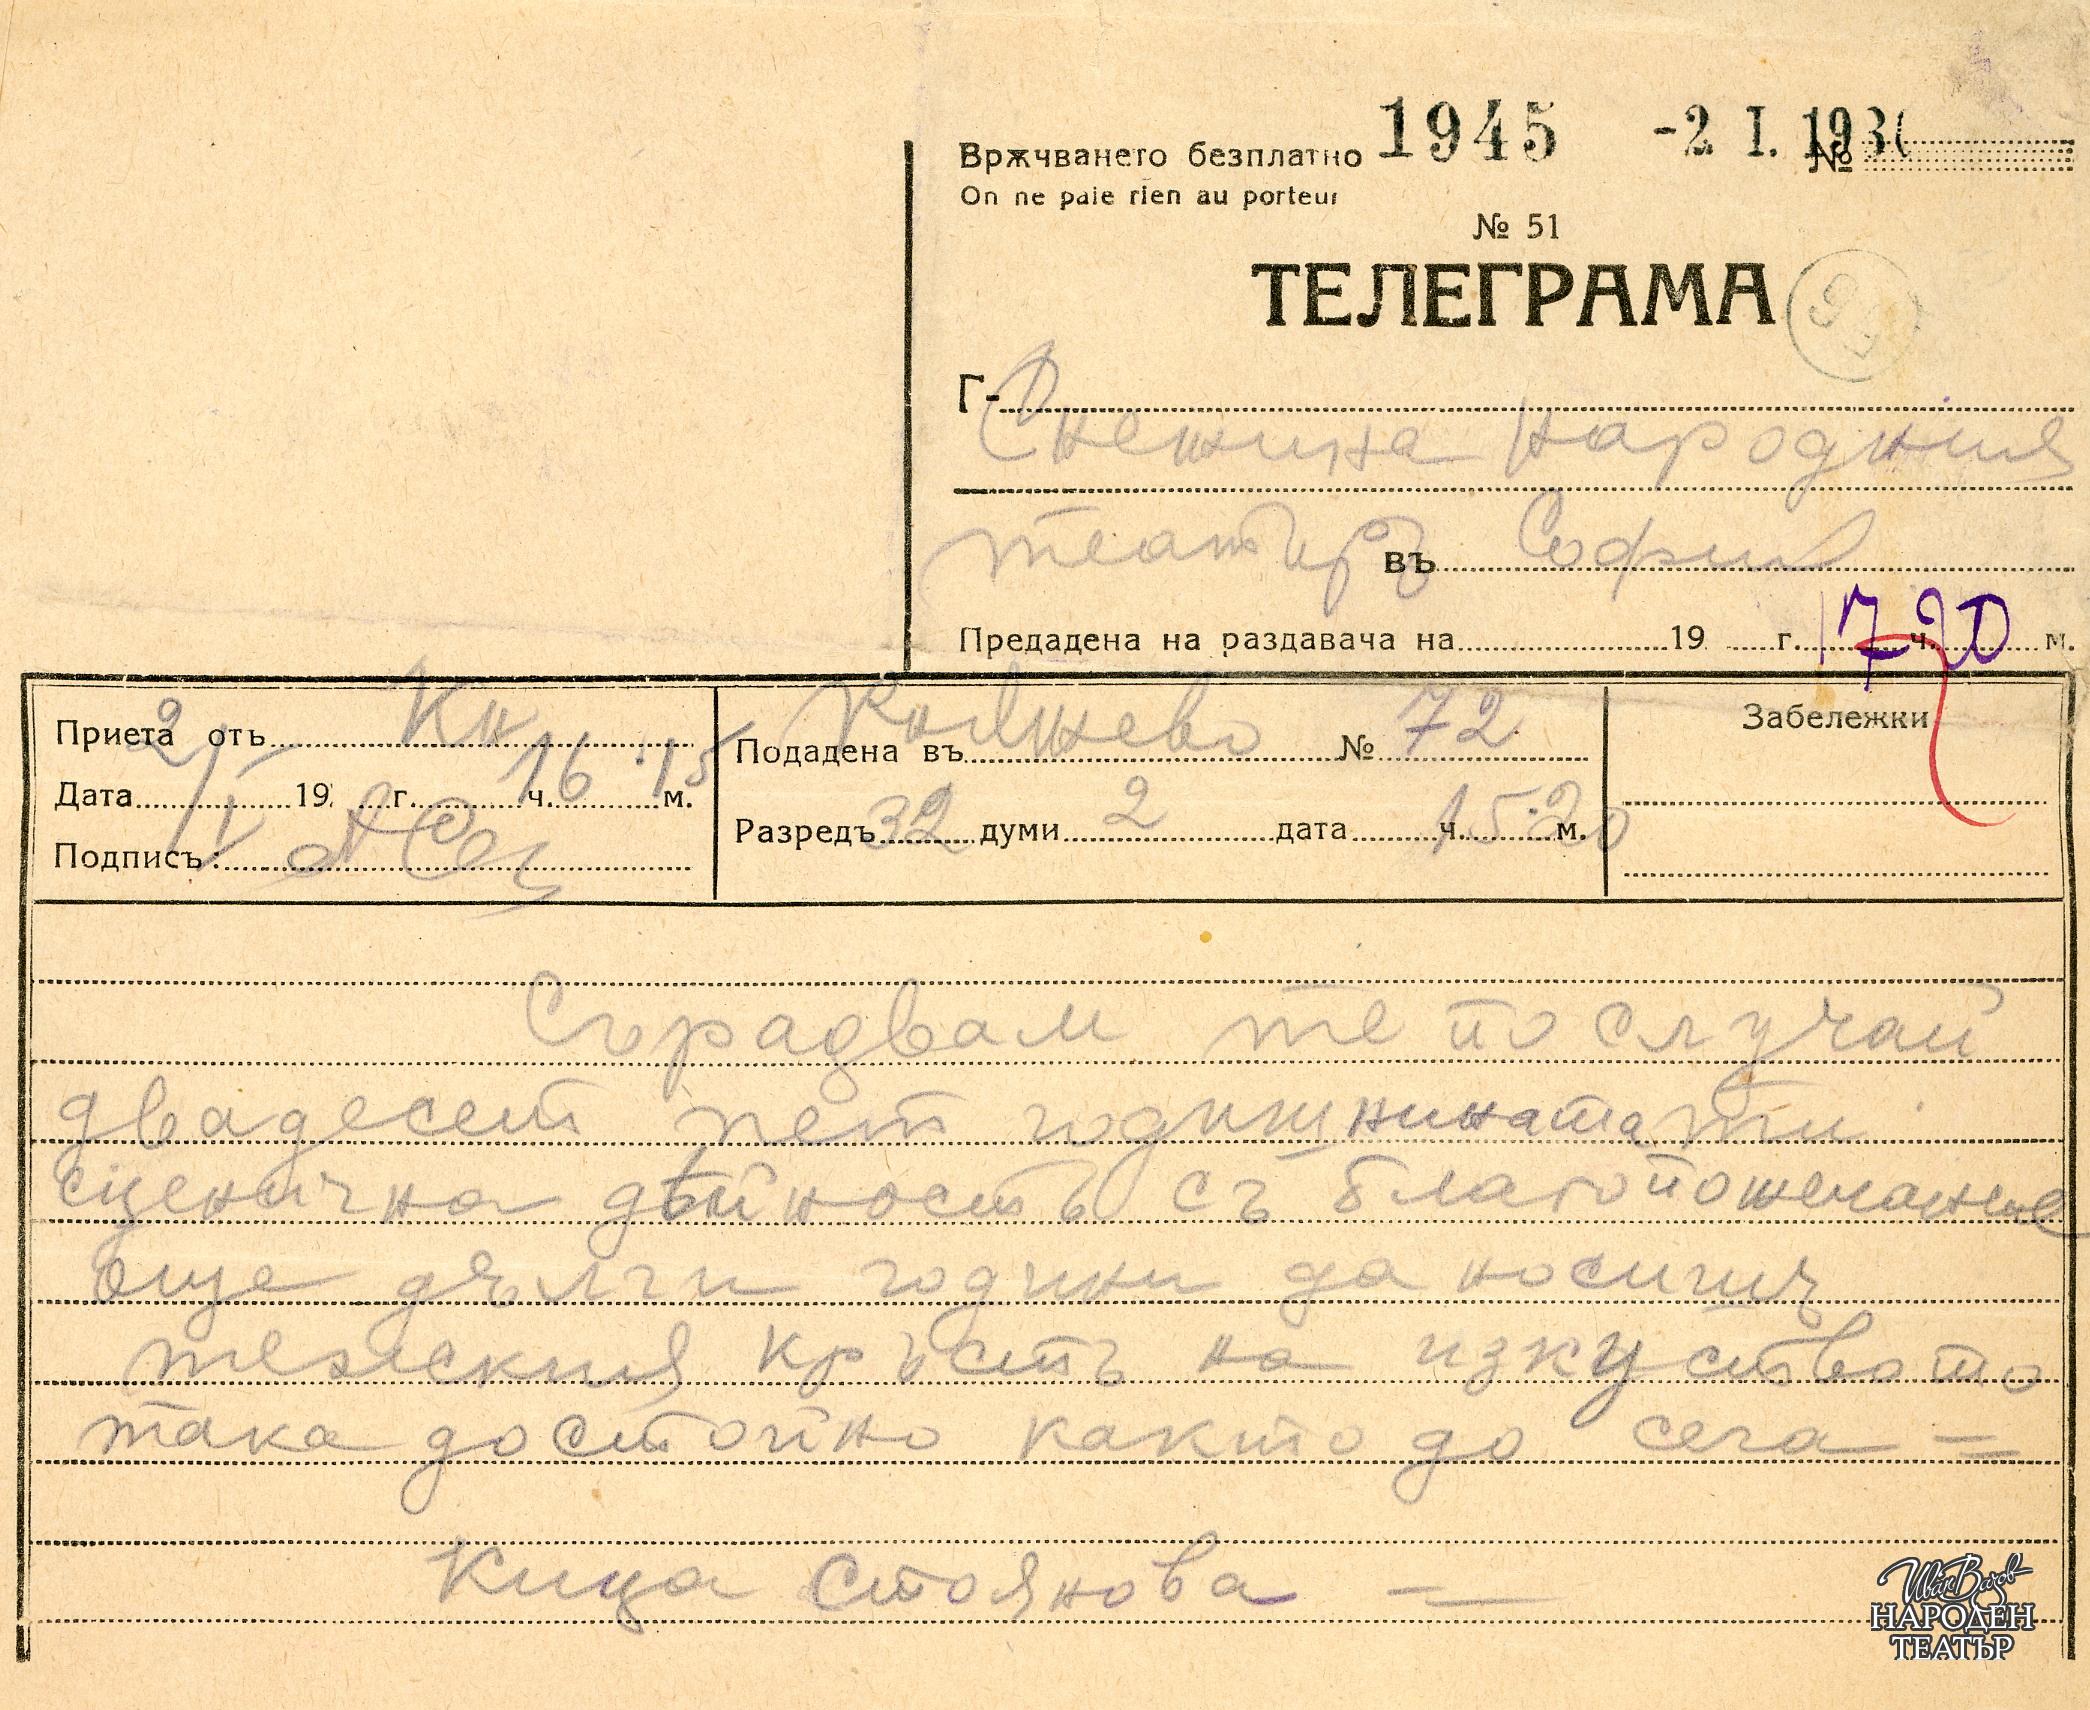 1945 -2 I. 193
Врѫчването безплатно №
On ne paie rien au porteur
№ 51
ТЕЛЕГРАМА
Г-
Снежина народния
театъръ въ София
Предадена на раздавача на 19 г. 17 ч. 20 м.
Приета отъ Кн
Дата 2/I 19 г. ч. 16 15 м.
Подписъ:
Подадена въ Княжево № 72
Разредъ 32 думи 2 дата ч. 15·20 м.
Забележки
Сърадвам те по случай
двадесет пет годишнината ти
сценична дѣйность съ благопожелание
още дълги години да носишъ
тежския кръстъ на изкуството
така достойно както до сега =
Кица Стоянова =
Иван Вазов
НАРОДЕН
ТЕАТЪР